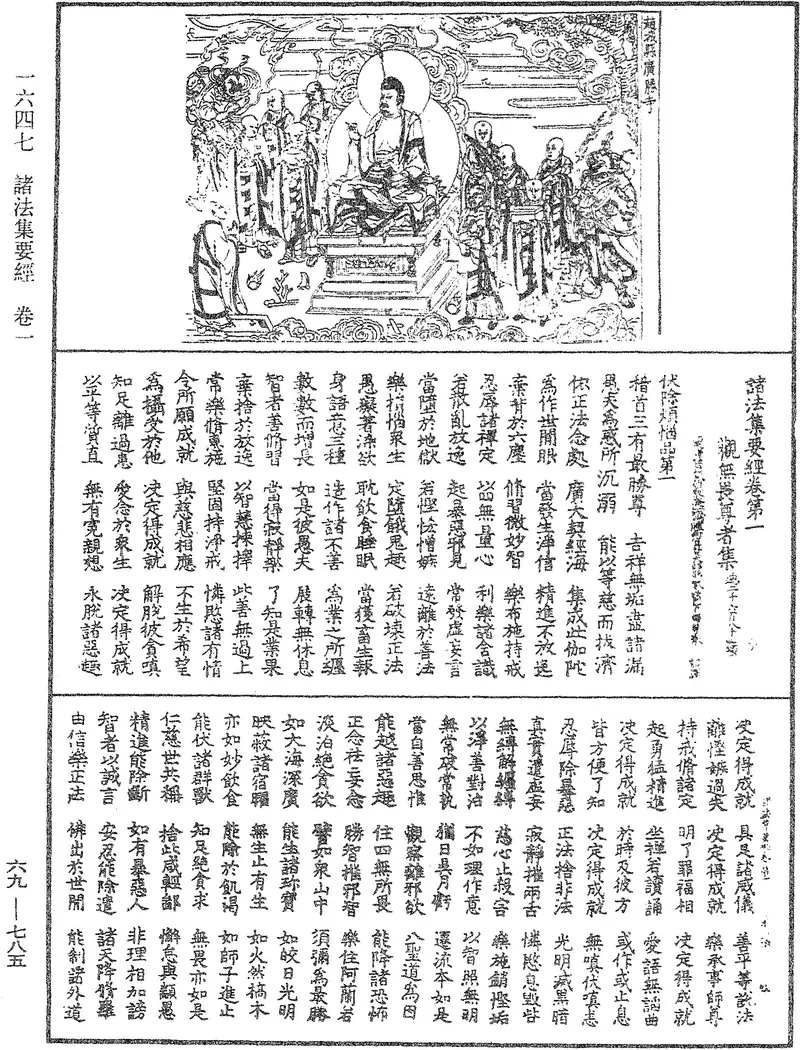 一六四七 諸法集要經 卷一
趙城縣廣勝寺
諸法集要經卷第一
觀無畏尊者集
伏除煩惱品第一
稽首三有最勝尊 吉祥無垢盡諸漏
愚夫為惑所沉溺 能以等慈而拔濟
依正法念處 廣大契經海 集成此伽陀
為作世間眼 當發生淨信 精進不放逸
棄背於六塵 修習微妙智 樂布施持戒
忍辱諸禪定 出無量心 利樂諸含識
若散亂放逸 起暴惡邪見 常發虛妄言
當墮於地獄 若慳悋憎嫉 遠離於善法
樂損惱衆生 定墮餓鬼趣 若破壞正法
愚癡著深欲 耽飲食睡眠 當獲畜生報
身語意三種 造作諸不善 為業之所纏
數數而增長 如是彼愚夫 展轉無休息
智者善脩習 當得寂靜樂 了知是業果
棄捨於放逸 以智慧揀擇 此善無過上
常樂脩惠施 堅固持淨戒 憐愍諸有情
令所願成就 與慈悲相應 不生於希望
為攝受於他 决定得成就 解脫彼貪嗔
知足離過患 愛念於衆生 决定得成就
以平等質直 無有冤親想 永脫諸惡趣
决定得成就 具足諸威儀 善平等說法
離慳嫉過失 决定得成就 樂承事師尊
持戒脩諸定 明了罪福相 决定得成就
起勇猛精進 坐禪若讀誦 愛語無諂曲
决定得成就 於時及彼方 或作或止息
皆方便了知 决定得成就 無嗔伏嗔恚
忍辱除暴惡 正法捨非法 光明滅黑暗
真實遣虛妄 寂靜摧兩舌 憐愍息毀呰
無縛解纏縛 慈心止殺害 樂施銷慳垢
以淨善對治 不如理作意 以智照無明
無常破常執 猶日與月虧 遷流本如是
當自善思惟 觀察離邪欲 八聖道為因
能越諸惡趣 住四無所畏 能降諸恐怖
正念袪妄念 勝智摧邪智 樂住阿蘭若
淡泊絕貪欲 譬如衆山中 須彌為最勝
如大海深廣 能生諸珎寶 如皎日光明
映蔽諸宿曜 無生止有生 如火然槁木
亦如妙飲食 能除於飢渴 如師子進止
能伏諸群獸 知足絕貪求 無畏亦如是
仁慈世共稱 捨此咸輕鄙 懈怠與顚愚
精進能除斷 如有暴惡人 非理相加謗
智者以誠言 安忍能除遣 諸天降脩羅
由信樂正法 佛出於世間 能制諸外道
六九—七八五